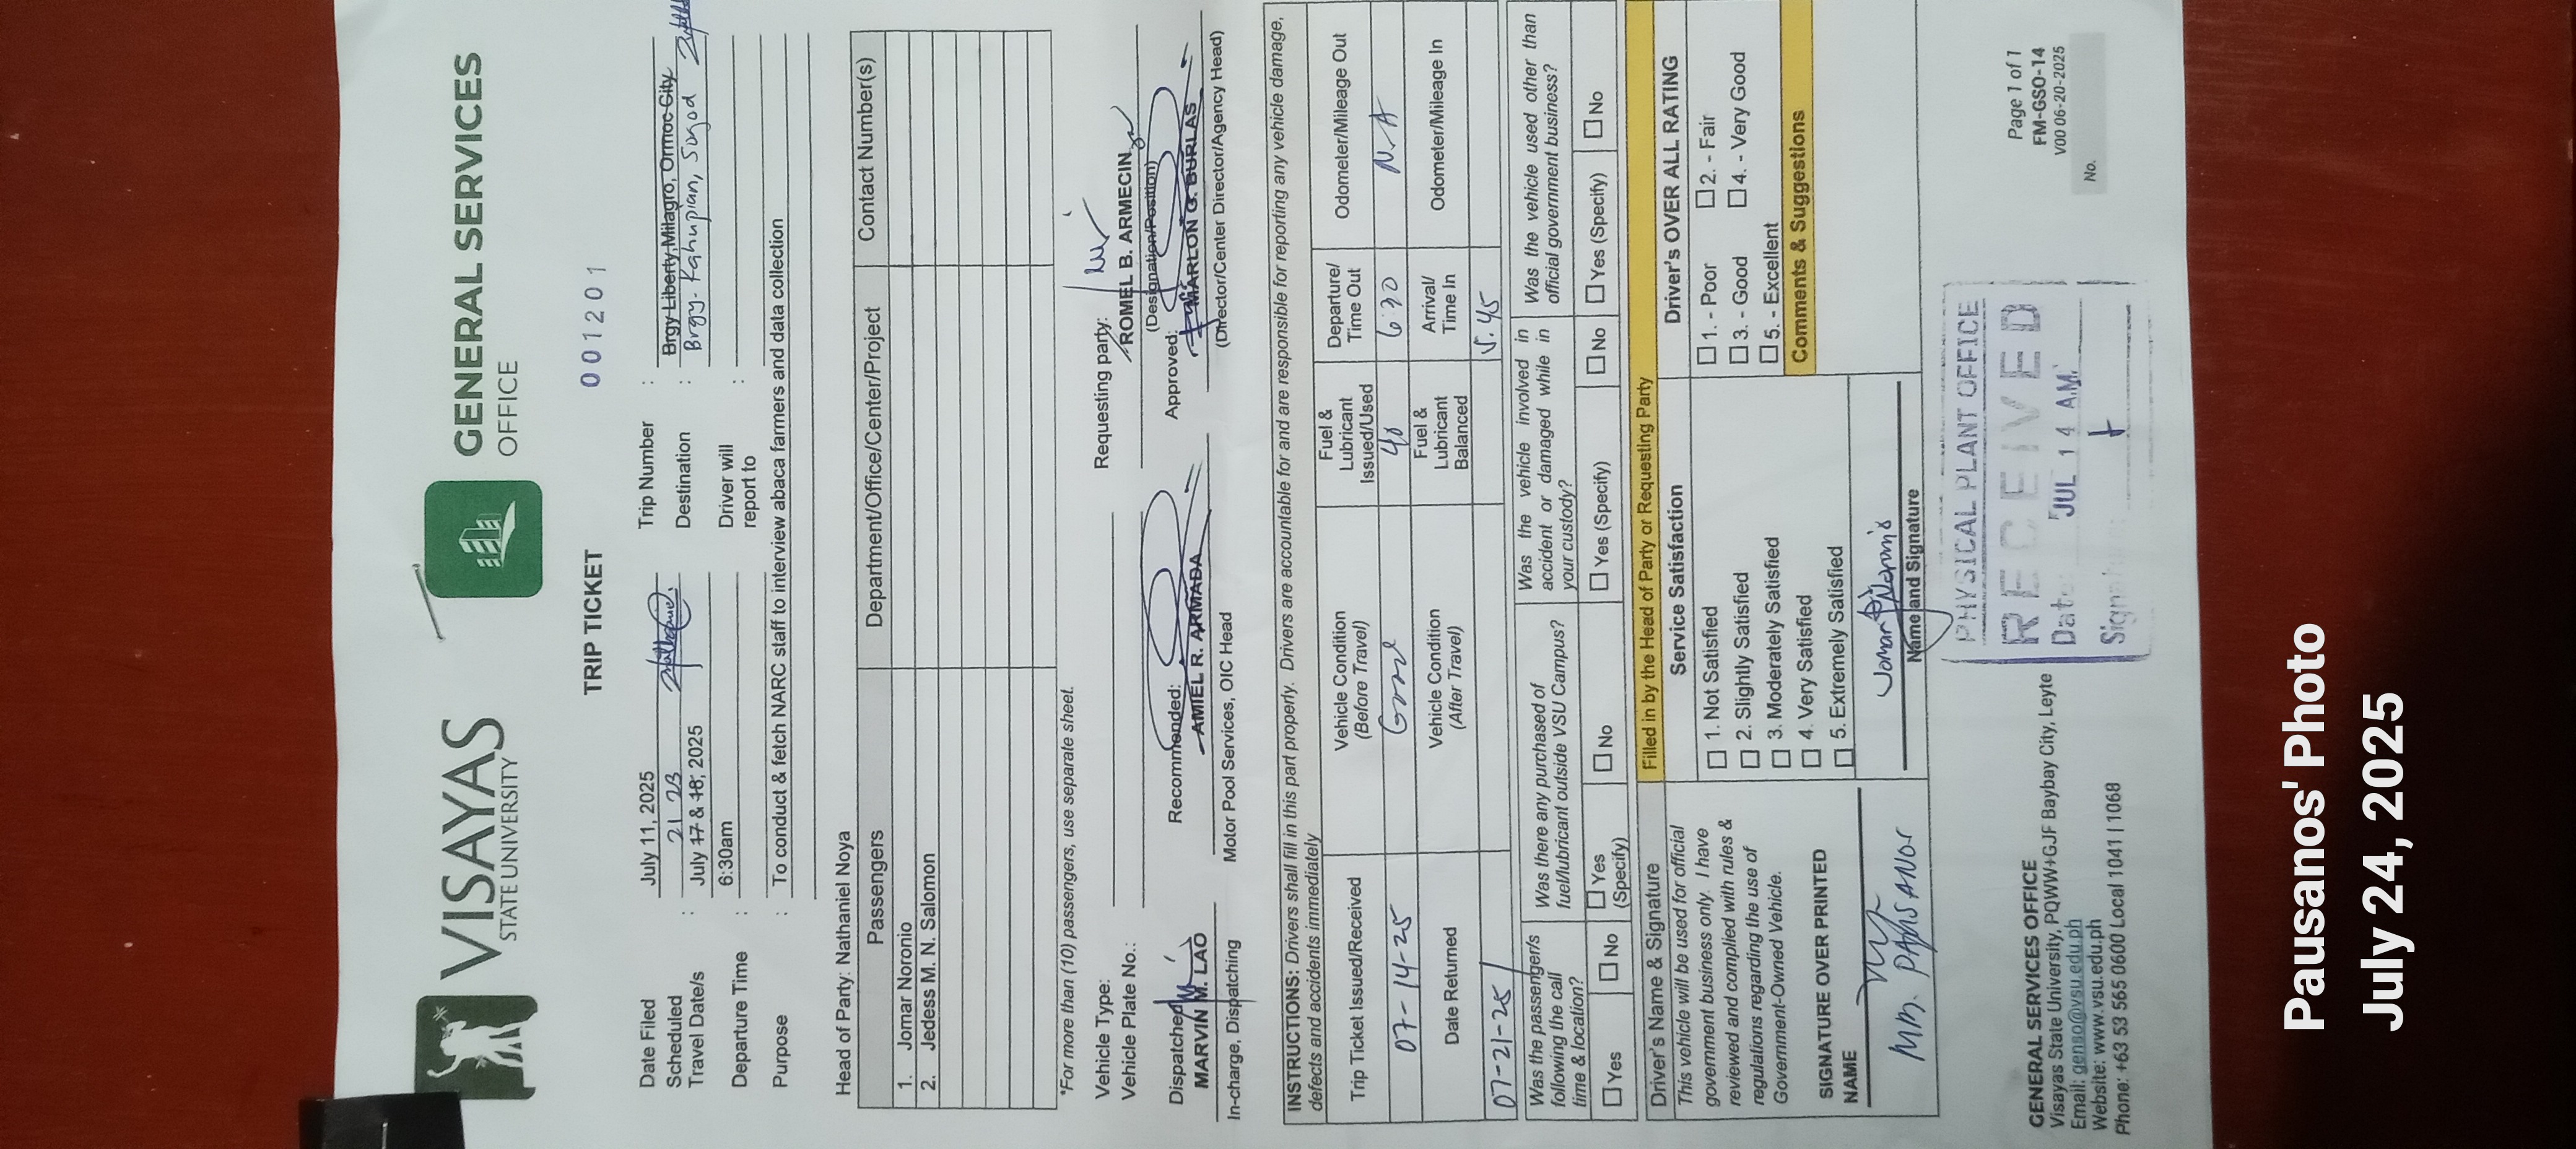 VISAYAS
STATE UNIVERSITY
GENERAL SERVICES
OFFICE
TRIP TICKET
001201
Date Filed : July 11, 2025
Trip Number :
Scheduled Travel Date/s : July 17 & 18, 2025
21 23
Destination : Brgy Liberty, Milagro, Ormoc City
Brgy. Kahupian, Sogod
Departure Time : 6:30am
Driver will report to :
Purpose : To conduct & fetch NARC staff to interview abaca farmers and data collection
Head of Party: Nathaniel Noya
Passengers Department/Office/Center/Project Contact Number(s)
1. Jomar Noronio
2. Jedess M. N. Salomon
*For more than (10) passengers, use separate sheet.
Vehicle Type:
Vehicle Plate No.:
Requesting party:
ROMEL B. ARMECIN
(Designation/Position)
Dispatched
MARVIN M. LAO
In-charge, Dispatching
Recommended:
AMIEL R. ARMADA
Motor Pool Services, OIC Head
Approved:
MARLON G. BURLAS
(Director/Center Director/Agency Head)
INSTRUCTIONS: Drivers shall fill in this part properly. Drivers are accountable for and are responsible for reporting any vehicle damage,
defects and accidents immediately
Trip Ticket Issued/Received
07-14-25
Vehicle Condition
(Before Travel)
Good
Fuel &
Lubricant
Issued/Used
40
Departure/
Time Out
6:30
Odometer/Mileage Out
N.A
Date Returned
07-21-25
Vehicle Condition
(After Travel)
Fuel &
Lubricant
Balanced
Arrival/
Time In
5:45
Odometer/Mileage In
Was the passenger/s
following the call
time & location?
☐ Yes ☐ No
Was there any purchased of
fuel/lubricant outside VSU Campus?
☐ Yes
(Specify)
☐ No
Was the vehicle involved in
accident or damaged while in
your custody?
☐ Yes (Specify) ☐ No
Was the vehicle used other than
official government business?
☐ Yes (Specify) ☐ No
Driver's Name & Signature
This vehicle will be used for official
government business only. I have
reviewed and complied with rules &
regulations regarding the use of
Government-Owned Vehicle.
SIGNATURE OVER PRINTED
NAME
Filled in by the Head of Party or Requesting Party
Service Satisfaction
☐ 1. Not Satisfied
☐ 2. Slightly Satisfied
☐ 3. Moderately Satisfied
☐ 4. Very Satisfied
☐ 5. Extremely Satisfied
Name and Signature
Driver's OVER ALL RATING
☐ 1. - Poor ☐ 2. - Fair
☐ 3. - Good ☐ 4. - Very Good
☐ 5. - Excellent
Comments & Suggestions
GENERAL SERVICES OFFICE
Visayas State University, PQWW+GJF Baybay City, Leyte
Email: genso@vsu.edu.ph
Website: www.vsu.edu.ph
Phone: +63 53 565 0600 Local 1041 | 1068
PHYSICAL PLANT OFFICE
RECEIVED
Date: JUL 14 AM
Page 1 of 1
FM-GSO-14
V00 06-20-2025
No.
Pausanos' Photo
July 24, 2025